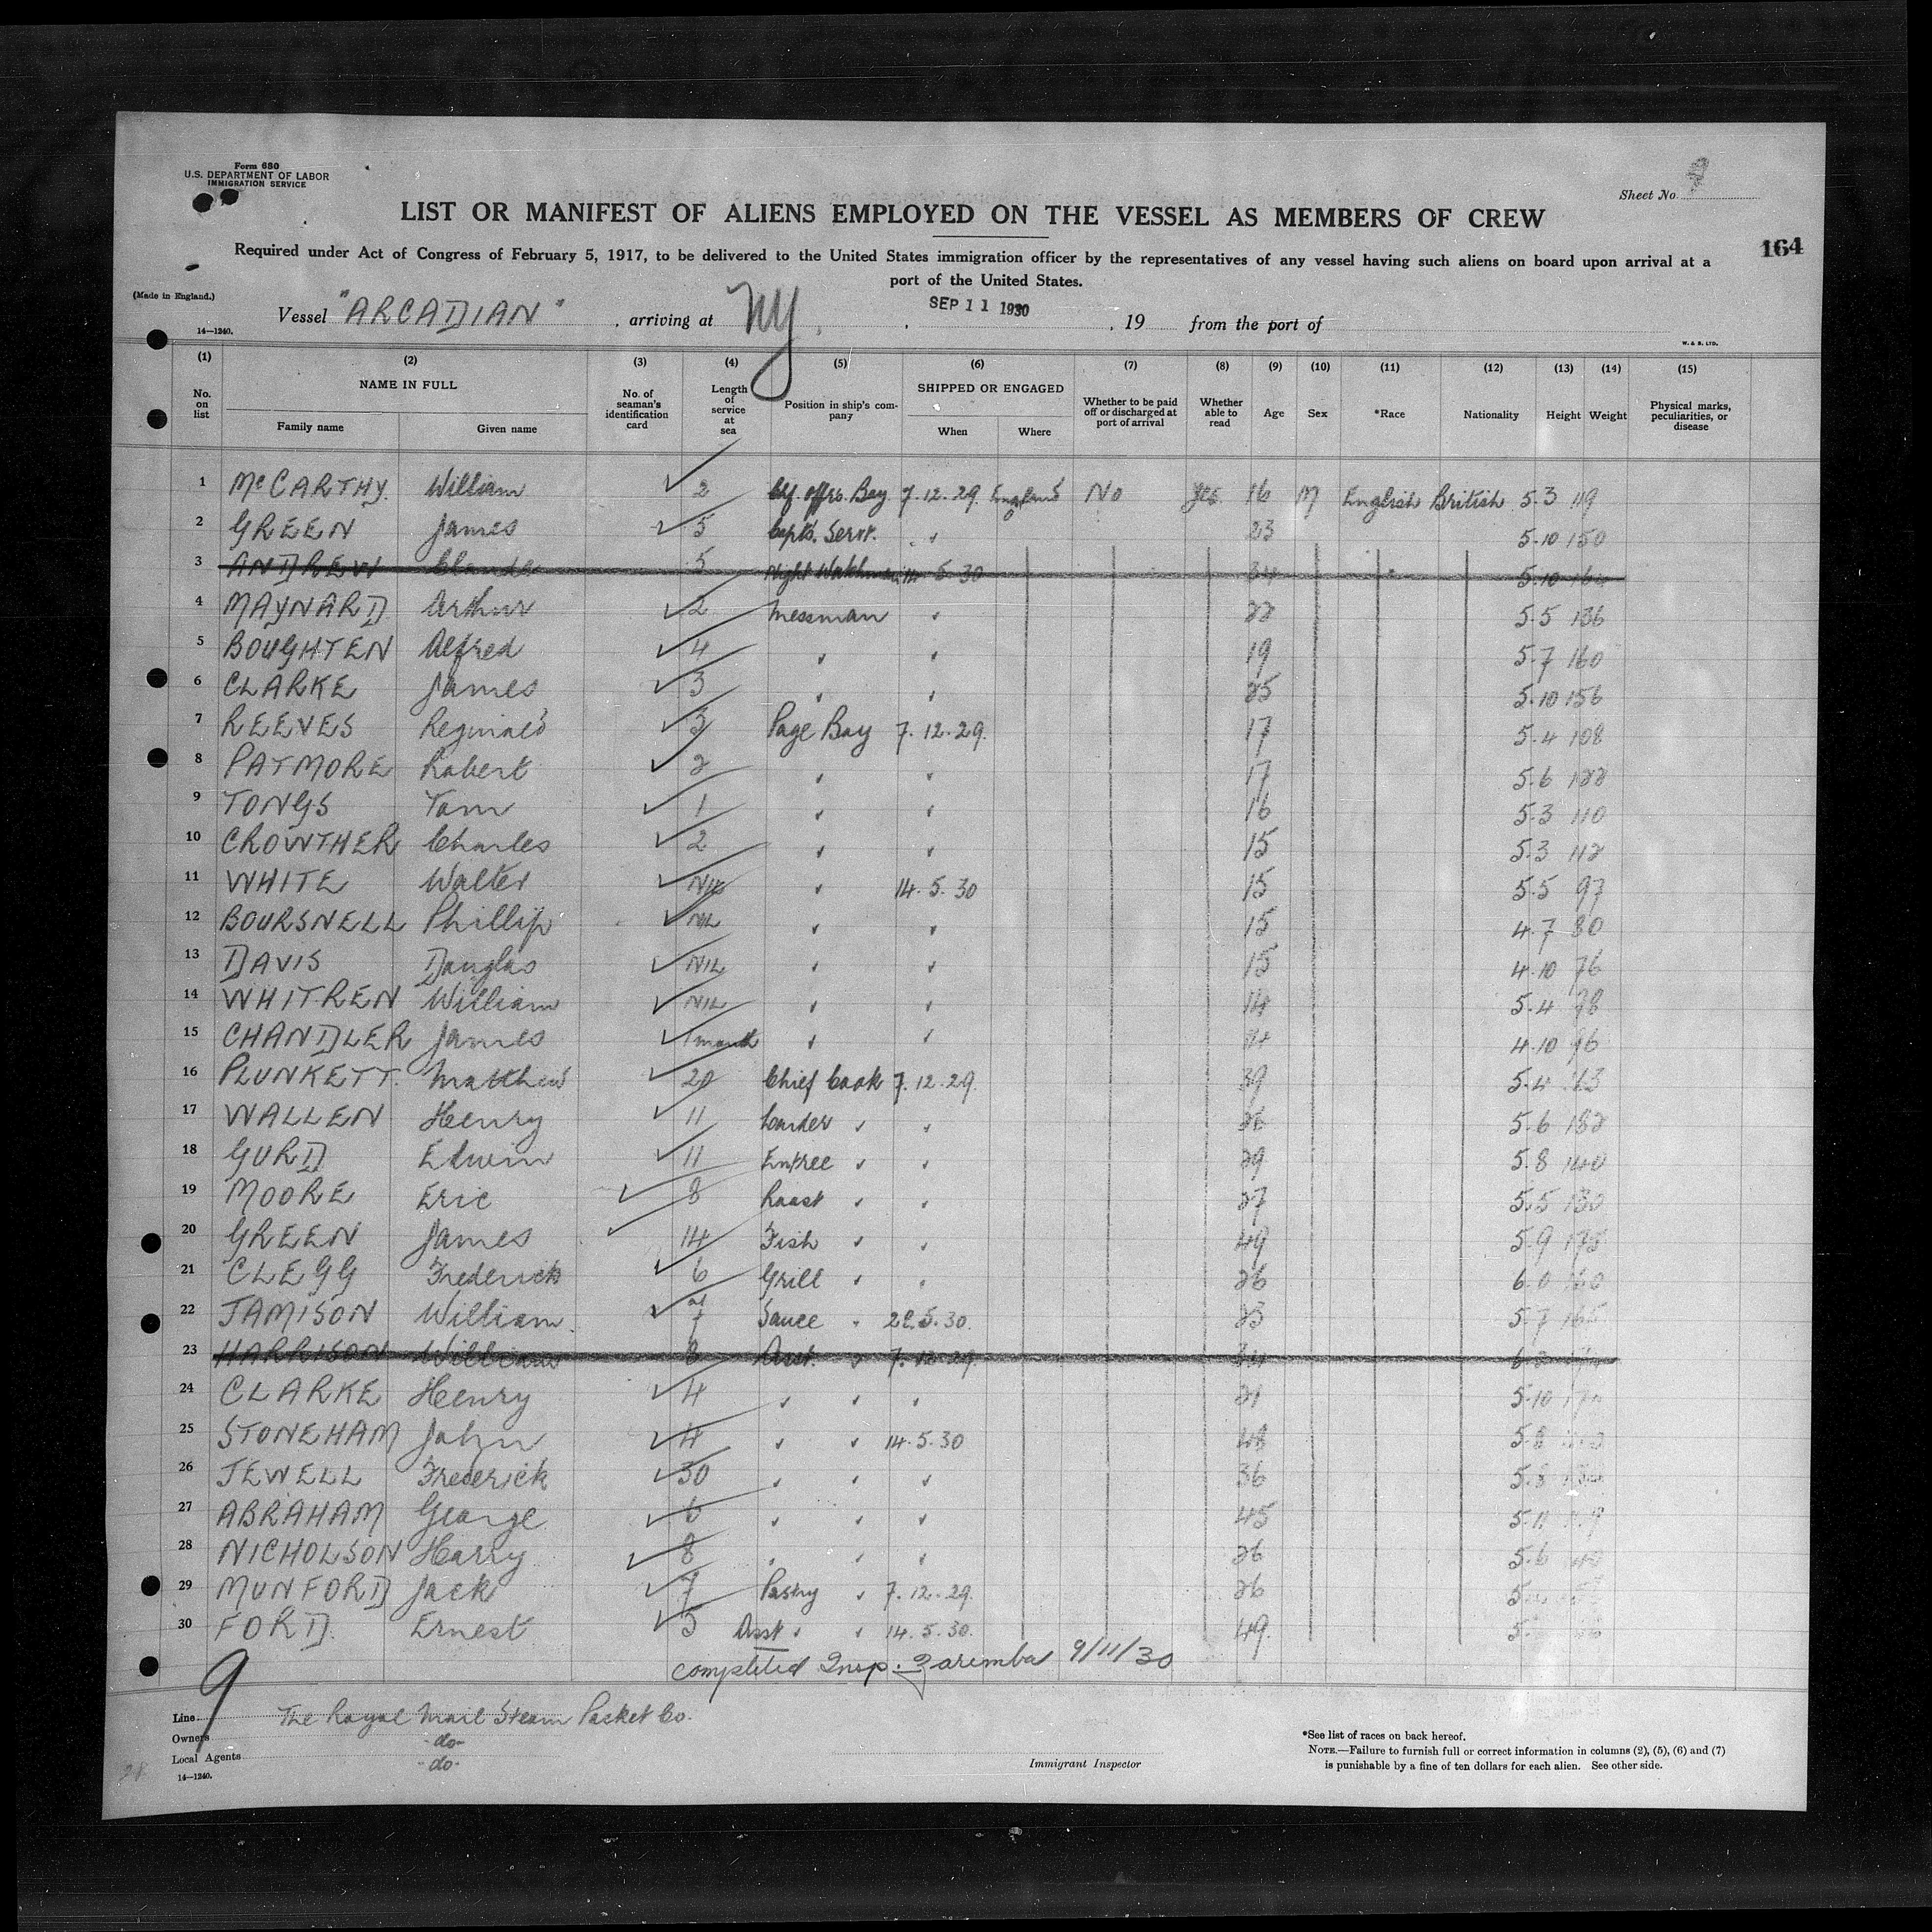 Form 680
U.S. DEPARTMENT OF LABOR
IMMIGRATION SERVICE
Sheet No.
LIST OR MANIFEST OF ALIENS EMPLOYED ON THE VESSEL AS MEMBERS OF CREW
164
Required under Act of Congress of February 5, 1917, to be delivered to the United States immigration officer by the representatives of any vessel having such aliens on board upon arrival at a
port of the United States.
(Made in England.)
Vessel "ARCADIAN", arriving at NY. , SEP 11 1930, 19 from the port of
14—1240.
W. & S. LTD.
(1) (2) (3) (4) (5) (6) (7) (8) (9) (10) (11) (12) (13) (14) (15)
No. on list NAME IN FULL Family name Given name No. of seaman's identification card Length of service at sea Position in ship's company SHIPPED OR ENGAGED When Where Whether to be paid off or discharged at port of arrival Whether able to read Age Sex *Race Nationality Height Weight Physical marks, peculiarities, or disease
1 McCARTHY. William 2 Chf. Offrs. Boy 7.12.29. England No Yes 16 M English British 5.3 119
2 GREEN James 5 Capts. Servt. 23 5.10 150
3 ANDREW Claude 5 Night Watchman 14.5.30 34 5.10
4 MAYNARD Arthur 2 Messman 22 5.5 136
5 BOUGHTEN Alfred 4 19 5.7 160
6 CLARKE James 3 25 5.10 156
7 REEVES Reginald 3 Page Boy 7.12.29. 17 5.4 108
8 PATMORE Robert 2 17 5.6 122
9 TONGS Tom 1 16 5.3 110
10 CROWTHER Charles 2 15 5.3 112
11 WHITE Walter NIL 14.5.30 15 5.5 97
12 BOURSNELL Phillip NIL 15 4.7 80
13 DAVIS Douglas NIL 15 4.10 76
14 WHITREN William NIL 14 5.4 98
15 CHANDLER James 1 month 14 4.10 96
16 PLUNKETT. Matthew 20 Chief Cook 7.12.29. 39 5.4
17 WALLEN Henry 11 Larder 26 5.6 132
18 GURD Edwin 11 Entree 29 5.8 140
19 MOORE Eric 8 Roast 27 5.5 130
20 GREEN James 14 Fish 49 5.9
21 CLEGG Frederick 6 Grill 26 6.0 160
22 JAMISON William. 7 Sauce 22.5.30. 23 5.7 165
23 HARRISON William 8 Asst. 7.12.29
24 CLARKE Henry 4 21 5.10
25 STONEHAM John 4 14.5.30 48 5.8
26 JEWELL Frederick 30 36 5.8
27 ABRAHAM George 6 45 5.11
28 NICHOLSON Harry 8 26 5.6
29 MUNFORD Jack 7 Pastry 7.12.29. 26
30 FORD. Ernest 5 Asst 14.5.30. 49.
completed Insp. Zaremba 9/11/30
9
Line The Royal Mail Steam Packet Co.
Owners -do-
Local Agents -do-
14—1240.
Immigrant Inspector
*See list of races on back hereof.
NOTE.—Failure to furnish full or correct information in columns (2), (5), (6) and (7)
is punishable by a fine of ten dollars for each alien. See other side.